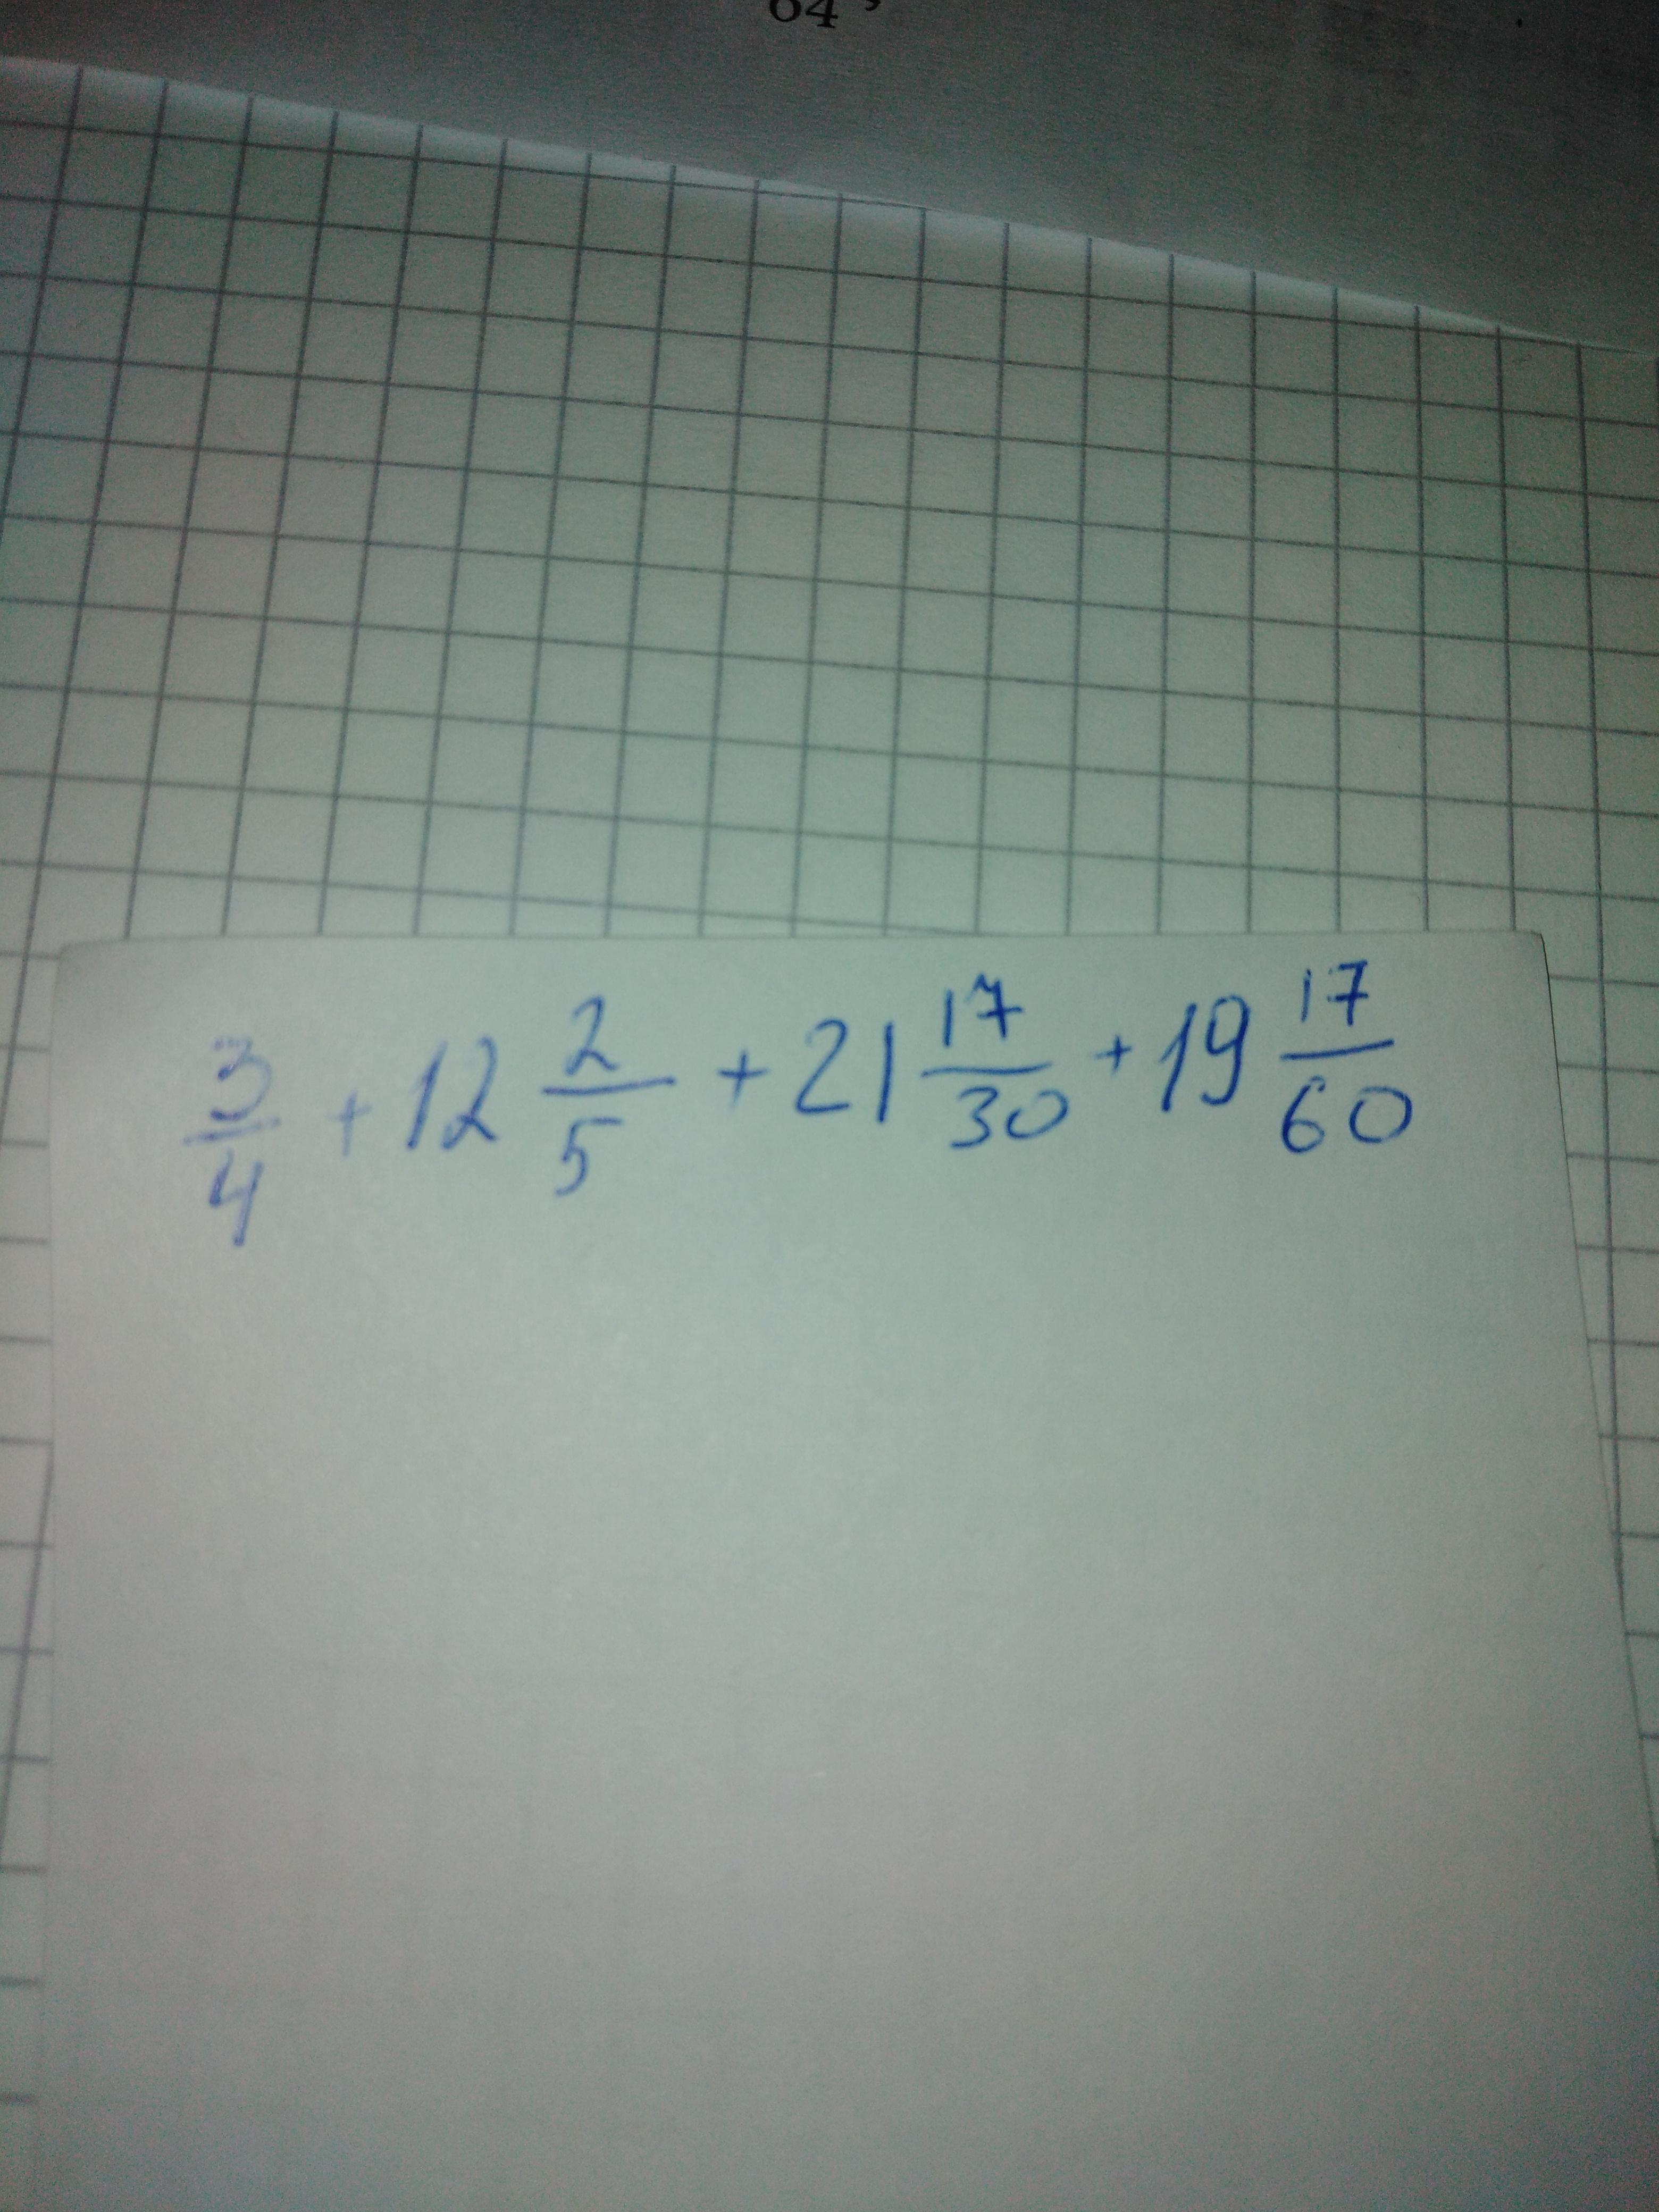 64
3/4 + 12 2/5 + 21 17/30 + 19 17/60